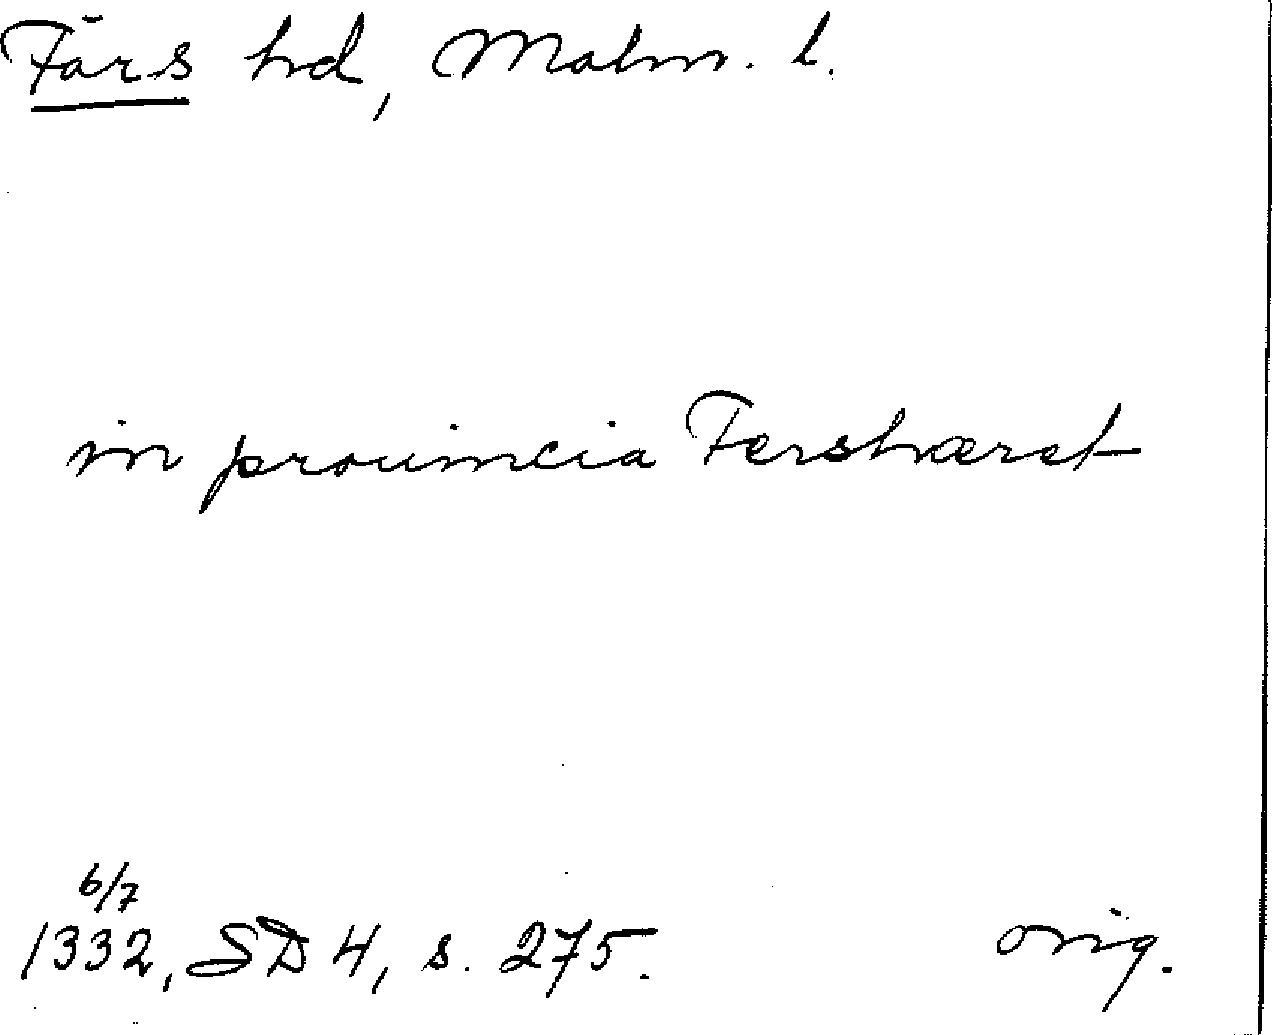 Färs hd, Malm. l.
in prouincia Fershæret
6/7
1332, SD 4, s. 275.
orig.